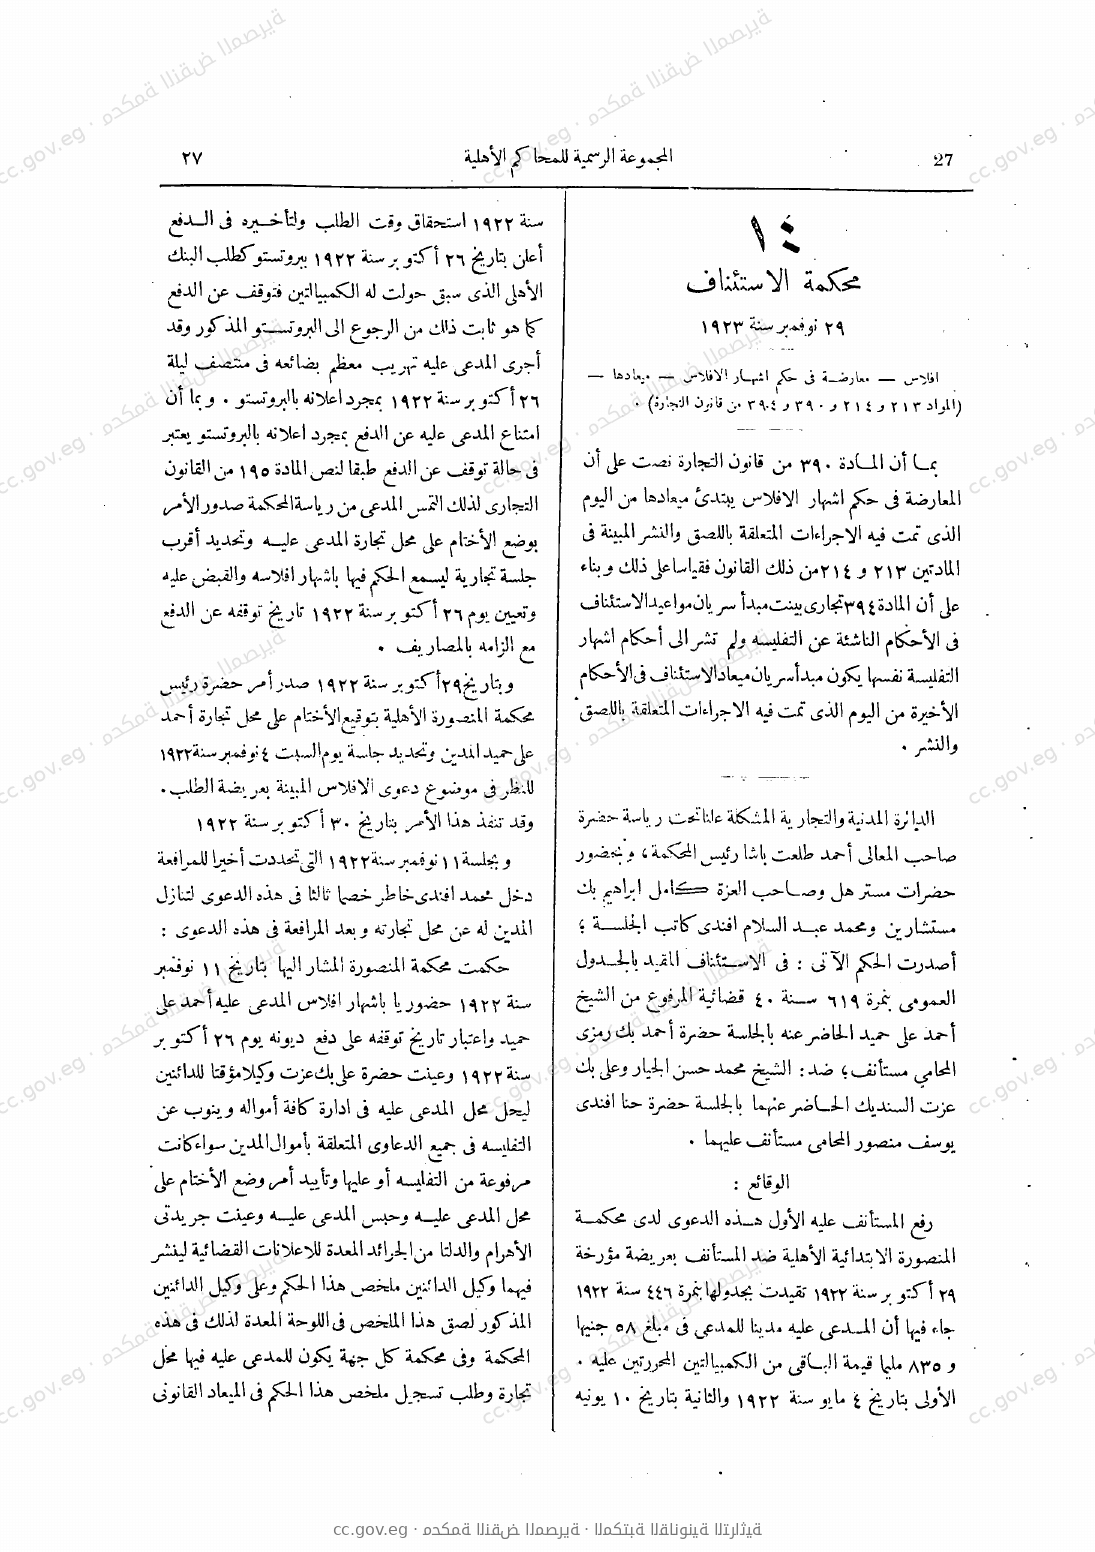 27
المجموعة الرسمية للمحاكم الأهلية
٢٧
١٤
محكمة الاستئناف
٢٩ نوفمبر سنة ١٩٢٣
افلاس — معارضة فى حكم اشهار الافلاس — ميعادها —
(المواد ٢١٣ و ٢١٤ و ٣٩٠ و ٣٩٤ من قانون التجارة) .
بما أن المادة ٣٩٠ من قانون التجارة نصت على أن
المعارضة فى حكم اشهار الافلاس يبتدئ ميعادها من اليوم
الذى تمت فيه الاجراءات المتعلقة باللصق والنشر المبينة فى
المادتين ٢١٣ و ٢١٤ من ذلك القانون فقياسا على ذلك وبناء
على أن المادة ٣٩٤ تجارى بينت مبدأ سريان مواعيد الاستئناف
فى الأحكام الناشئة عن التفليسه ولم تشر الى أحكام اشهار
التفليسة نفسها يكون مبدأ سريان ميعاد الاستئناف فى الأحكام
الأخيرة من اليوم الذى تمت فيه الاجراءات المتعلقة باللصق
والنشر .
الدائرة المدنية والتجارية المشكلة علنا تحت رياسة حضرة
صاحب المعالى أحمد طلعت باشا رئيس المحكمة، وبحضور
حضرات مستر هل وصاحب العزة كامل ابراهيم بك
مستشارين ومحمد عبد السلام افندى كاتب الجلسة ؛
أصدرت الحكم الآتى : فى الاستئناف المقيد بالجدول
العمومى بنمرة ٦١٩ سنة ٤٠ قضائية المرفوع من الشيخ
أحمد على حميد الحاضر عنه بالجلسة حضرة أحمد بك رمزى
المحامي مستأنف؛ ضد: الشيخ محمد حسن الجيار وعلى بك
عزت السنديك الحاضر عنهما بالجلسة حضرة حنا افندى
يوسف منصور المحامى مستأنف عليهما .
الوقائع :
رفع المستأنف عليه الأول هذه الدعوى لدى محكمة
المنصورة الابتدائية الأهلية ضد المستأنف بعريضة مؤرخة
٢٩ أكتوبر سنة ١٩٢٢ تقيدت بجدولها بنمرة ٤٤٦ سنة ١٩٢٢
جاء فيها أن المدعى عليه مدينا للمدعى فى مبلغ ٥٨ جنيها
و ٨٣٥ مليما قيمة الباقى من الكمبيالتين المحررتين عليه .
الأولى بتاريخ ٤ مايو سنة ١٩٢٢ والثانية بتاريخ ١٠ يونيه
سنة ١٩٢٢ استحقاق وقت الطلب ولتأخيره فى الدفع
أعلن بتاريخ ٢٦ أكتوبر سنة ١٩٢٢ ببروتستو كطلب البنك
الأهلى الذى سبق حولت له الكمبيالتين فتوقف عن الدفع
كما هو ثابت ذلك من الرجوع الى البروتستو المذكور وقد
أجرى المدعى عليه تهريب معظم بضائعه فى منتصف ليلة
٢٦ أكتوبر سنة ١٩٢٢ بمجرد اعلانه بالبروتستو . وبما أن
امتناع المدعى عليه عن الدفع بمجرد اعلانه بالبروتستو يعتبر
فى حالة توقف عن الدفع طبقا لنص المادة ١٩٥ من القانون
التجارى لذلك التمس المدعى من رياسة المحكمة صدور الأمر
بوضع الأختام على محل تجارة المدعى عليه وتحديد أقرب
جلسة تجارية ليسمع الحكم فيها باشهار افلاسه والقبض عليه
وتعيين يوم ٢٦ أكتوبر سنة ١٩٢٢ تاريخ توقفه عن الدفع
مع الزامه بالمصاريف .
وبتاريخ ٢٩ أكتوبر سنة ١٩٢٢ صدر أمر حضرة رئيس
محكمة المنصورة الأهلية بتوقيع الأختام على محل تجارة أحمد
على حميد المدين وتحديد جلسة يوم السبت ٤ نوفمبر سنة ١٩٢٢
للنظر فى موضوع دعوى الافلاس المبينة بعريضة الطلب .
وقد تنفذ هذا الأمر بتاريخ ٣٠ أكتوبر سنة ١٩٢٢
وبجلسة ١١ نوفمبر سنة ١٩٢٢ التى تحددت أخيرا للمرافعة
دخل محمد افندى خاطر خصما ثالثا فى هذه الدعوى لتنازل
المدين له عن محل تجارته وبعد المرافعة فى هذه الدعوى :
حكمت محكمة المنصورة المشار اليها بتاريخ ١١ نوفمبر
سنة ١٩٢٢ حضوريا باشهار افلاس المدعى عليه أحمد على
حميد واعتبار تاريخ توقفه على دفع ديونه يوم ٢٦ أكتوبر
سنة ١٩٢٢ وعينت حضرة على بك عزت وكيلا مؤقتا للدائنين
ليحل محل المدعى عليه فى ادارة كافة أمواله وينوب عن
التفليسه فى جميع الدعاوى المتعلقة بأموال المدين سواء كانت
مرفوعة من التفليسه أو عليها وتأييد أمر وضع الأختام على
محل المدعى عليه وحبس المدعى عليه وعينت جريدتى
الأهرام والدلتا من الجرائد المعدة للاعلانات القضائية لينشر
فيهما وكيل الدائنين ملخص هذا الحكم وعلى وكيل الدائنين
المذكور لصق هذا الملخص فى اللوحة المعدة لذلك فى هذه
المحكمة وفى محكمة كل جهة يكون للمدعى عليه فيها محل
تجارة وطلب تسجيل ملخص هذا الحكم فى الميعاد القانونى
cc.gov.eg · محكمة النقض المصرية · المكتبة القانونية التراثية